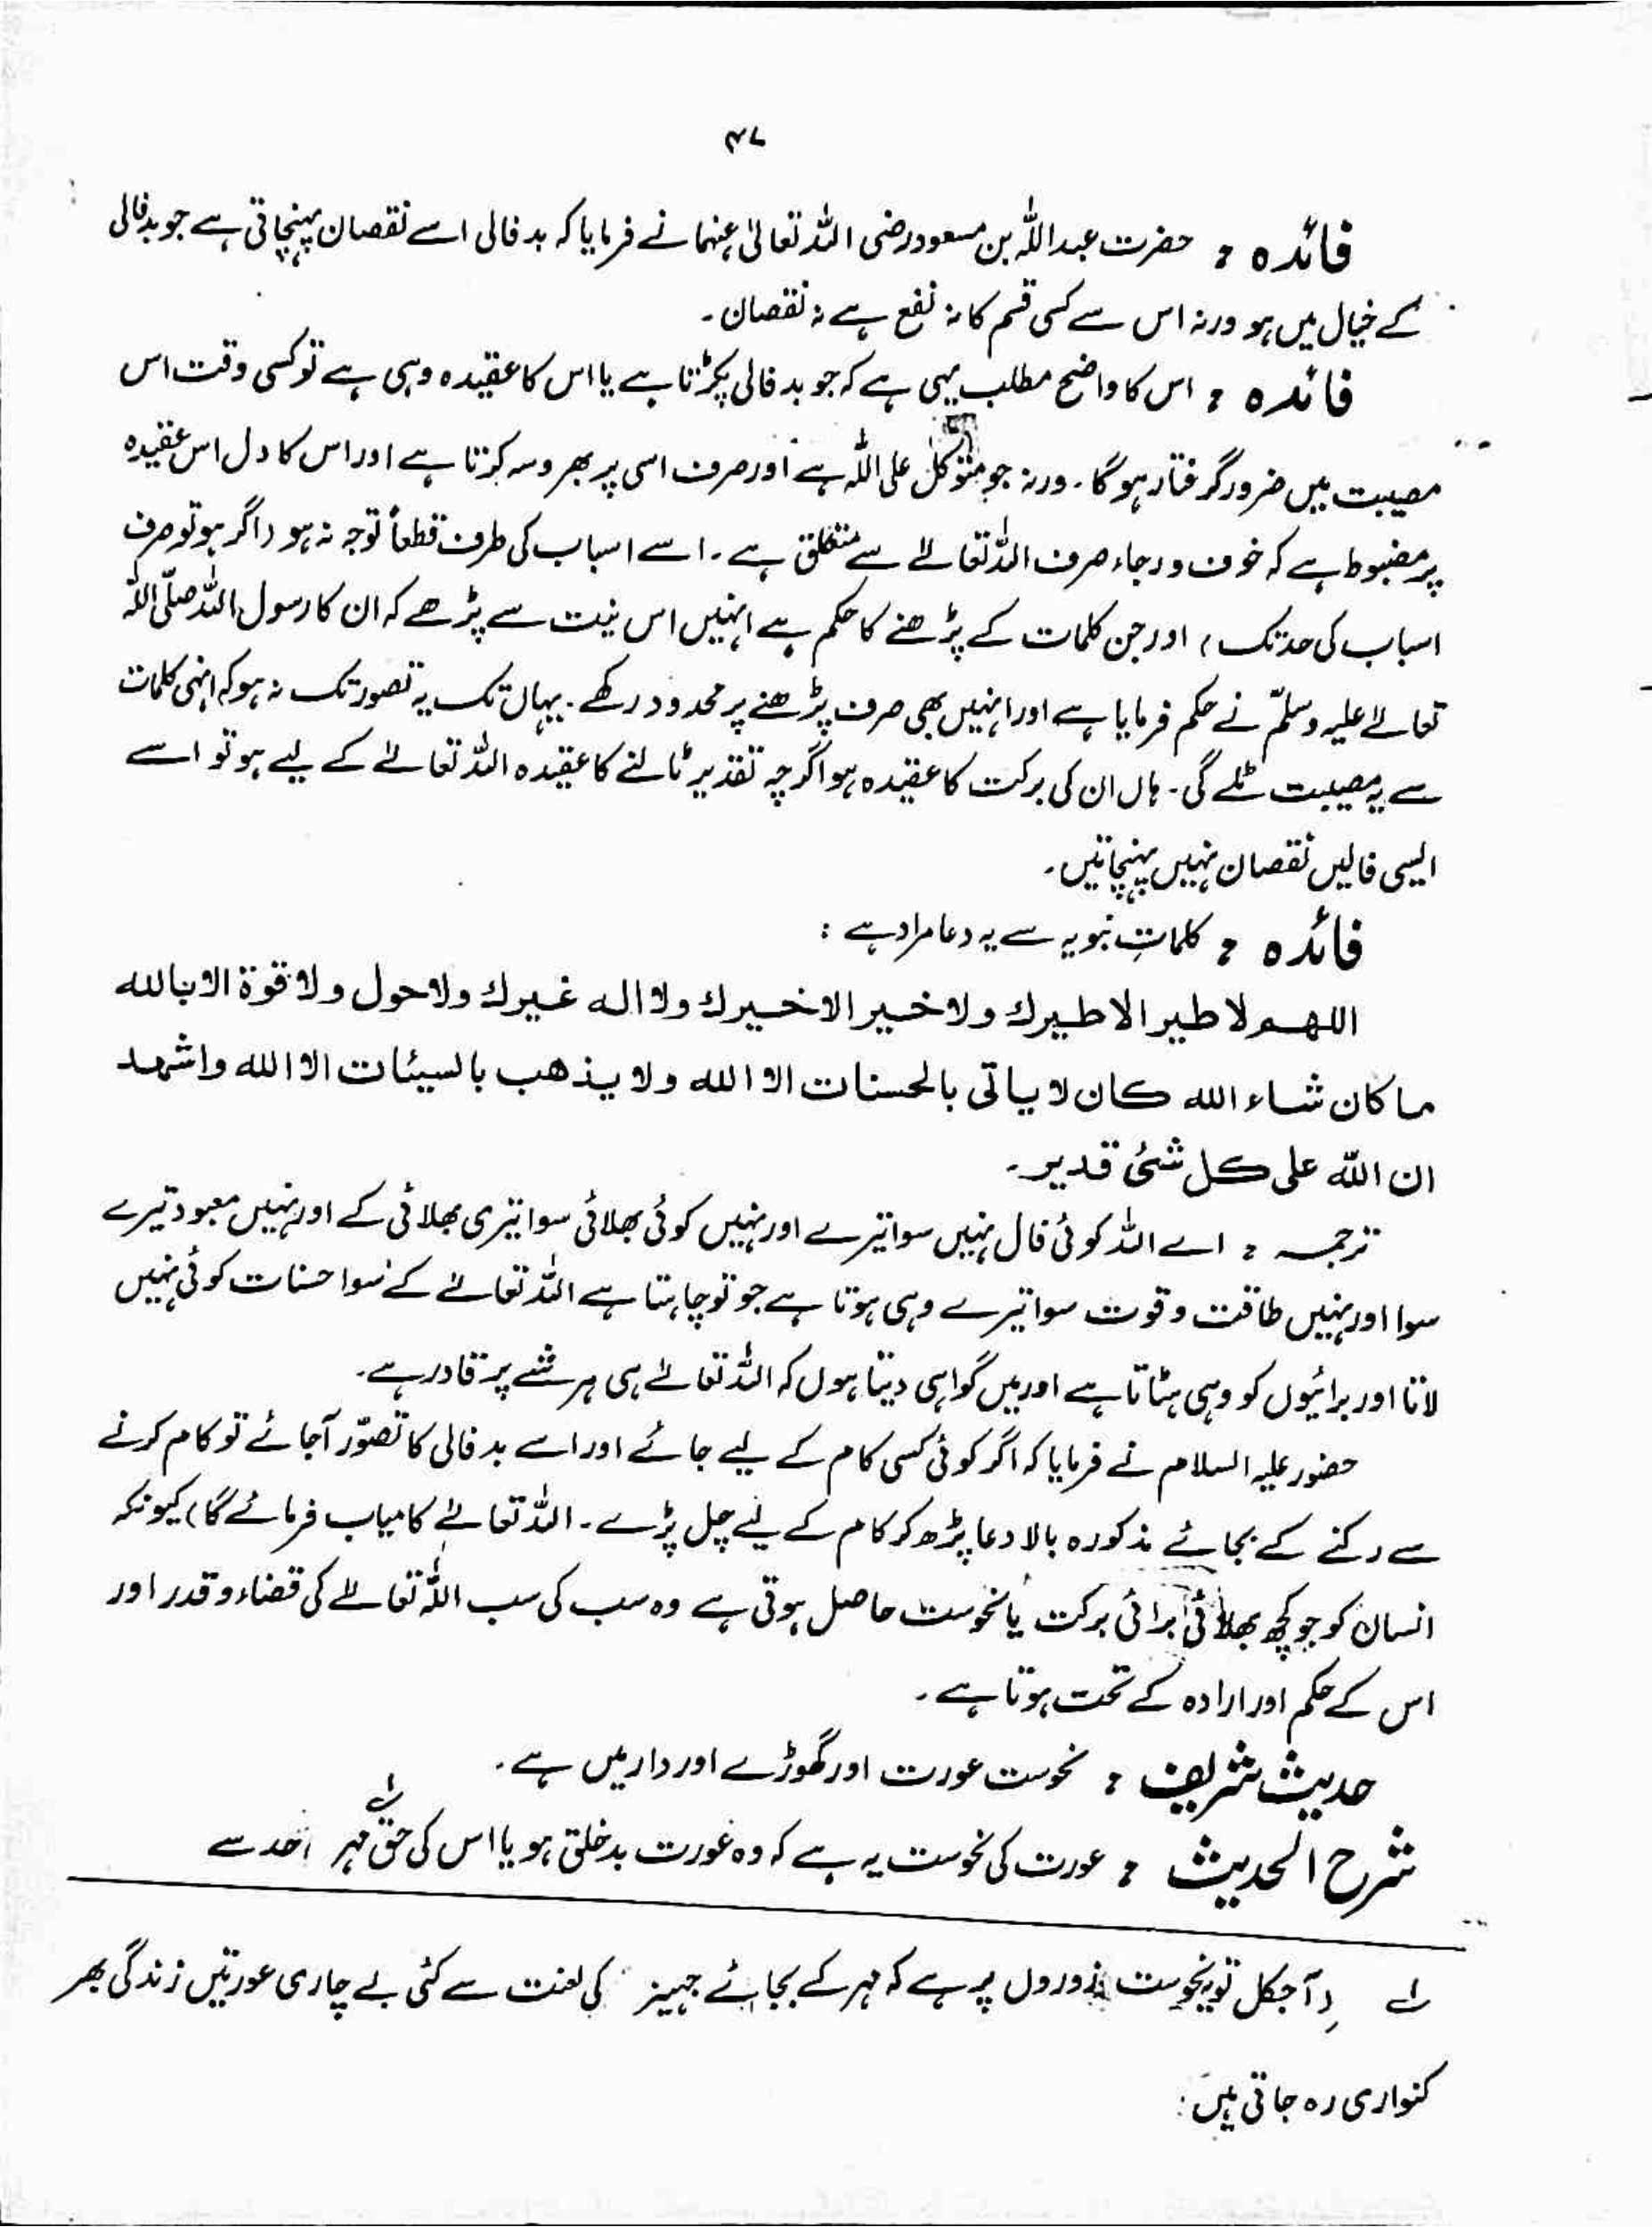 ۴۷
فائدہ : حضرت عبداللہ بن مسعود رضی اللہ تعالیٰ عنہما نے فرمایا کہ بدفالی اسے نقصان پہنچاتی ہے جو بدفالی
کے خیال میں ہو ورنہ اس سے کسی قسم کا نہ نفع ہے نہ نقصان۔
فائدہ : اس کا واضح مطلب یہی ہے کہ جو بدفالی پکڑتا ہے یا اس کا عقیدہ وہی ہے تو کسی وقت اس
مصیبت میں ضرور گرفتار ہوگا۔ ورنہ جو متوکل علی اللہ ہے اور صرف اسی پر بھروسہ کرتا ہے اور اس کا دل اس عقیدہ
پر مضبوط ہے کہ خوف و رجاء صرف اللہ تعالےٰ سے متعلق ہے۔ اسے اسباب کی طرف قطعاً توجہ نہ ہو (اگر ہو تو صرف
اسباب کی حد تک) اور جن کلمات کے پڑھنے کا حکم ہے انہیں اس نیت سے پڑھے کہ ان کا رسول اللہ صلّی اللہ
تعالےٰ علیہ وسلّم نے حکم فرمایا ہے اور انہیں بھی صرف پڑھنے پر محدود رکھے۔ یہاں تک یہ تصور تک نہ ہو کہ انہی کلمات
سے یہ مصیبت ٹلے گی۔ ہاں ان کی برکت کا عقیدہ ہو اگرچہ تقدیر ٹالنے کا عقیدہ اللہ تعالےٰ کے لیے ہو تو اسے
ایسی فالیں نقصان نہیں پہنچاتیں۔
فائدہ : کلماتِ نبویہ سے یہ دعا مراد ہے :
اللهم لا طير الا طيرك ولا خير الا خيرك ولا اله غيرك ولا حول ولا قوة الا بالله
ما كان شاء الله كان لا ياتى بالحسنات الا الله ولا يذهب بالسيئات الا الله واشهد
ان الله على كل شئ قدير۔
ترجمہ : اے اللہ کوئی فال نہیں سوا تیرے اور نہیں کوئی بھلائی سوا تیری بھلائی کے اور نہیں معبود تیرے
سوا اور نہیں طاقت و قوت سوا تیرے وہی ہوتا ہے جو تو چاہتا ہے اللہ تعالےٰ کے سوا حسنات کوئی نہیں
لاتا اور برائیوں کو وہی ہٹاتا ہے اور میں گواہی دیتا ہوں کہ اللہ تعالےٰ ہی ہر شے پر قادر ہے۔
حضور علیہ السلام نے فرمایا کہ اگر کوئی کسی کام کے لیے جائے اور اسے بدفالی کا تصوّر آجائے تو کام کرنے
سے رکنے کے بجائے مذکورہ بالا دعا پڑھ کر کام کے لیے چل پڑے۔ اللہ تعالےٰ کامیاب فرمائے گا) کیونکہ
انسان کو جو کچھ بھلائی برائی برکت یا نحوست حاصل ہوتی ہے وہ سب کی سب اللہ تعالےٰ کی قضاء و قدر اور
اس کے حکم اور ارادہ کے تحت ہوتا ہے۔
حدیث شریف : نحوست عورت اور گھوڑے اور دار میں ہے۔
شرح الحدیث : عورت کی نحوست یہ ہے کہ وہ عورت بدخلق ہو یا اس کی حق مہر لہ حد سے
لہ (آجکل تو یہ نحوست زوروں پر ہے کہ مہر کے بجائے جہیز کی لعنت سے کئی بے چاری عورتیں زندگی بھر
کنواری رہ جاتی ہیں :